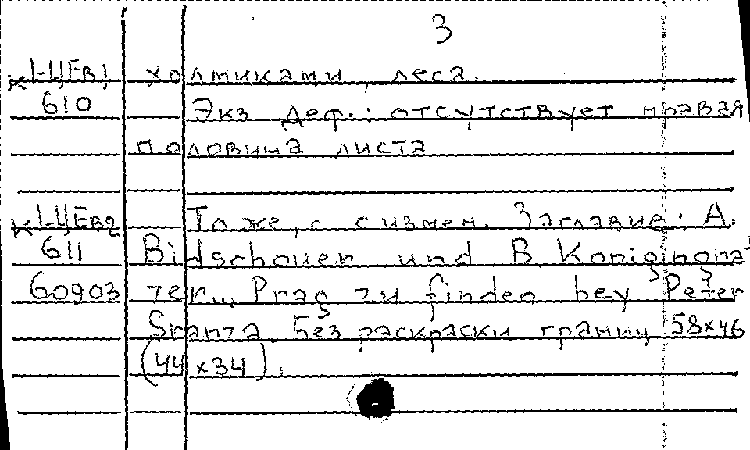 3
К 1-Ц.Ев.1 холмиками, леса.
610 Экз. деф.: отсутствует правая
половина листа
К 1-Ц.Ев2 То же, с с измен. Заглавие: A.
611 Bidschouer und B. Konigingra-
60903 zer... Prag zu finden bey Peter
Sranza. Без раскраски границ 58x46
(44x34).